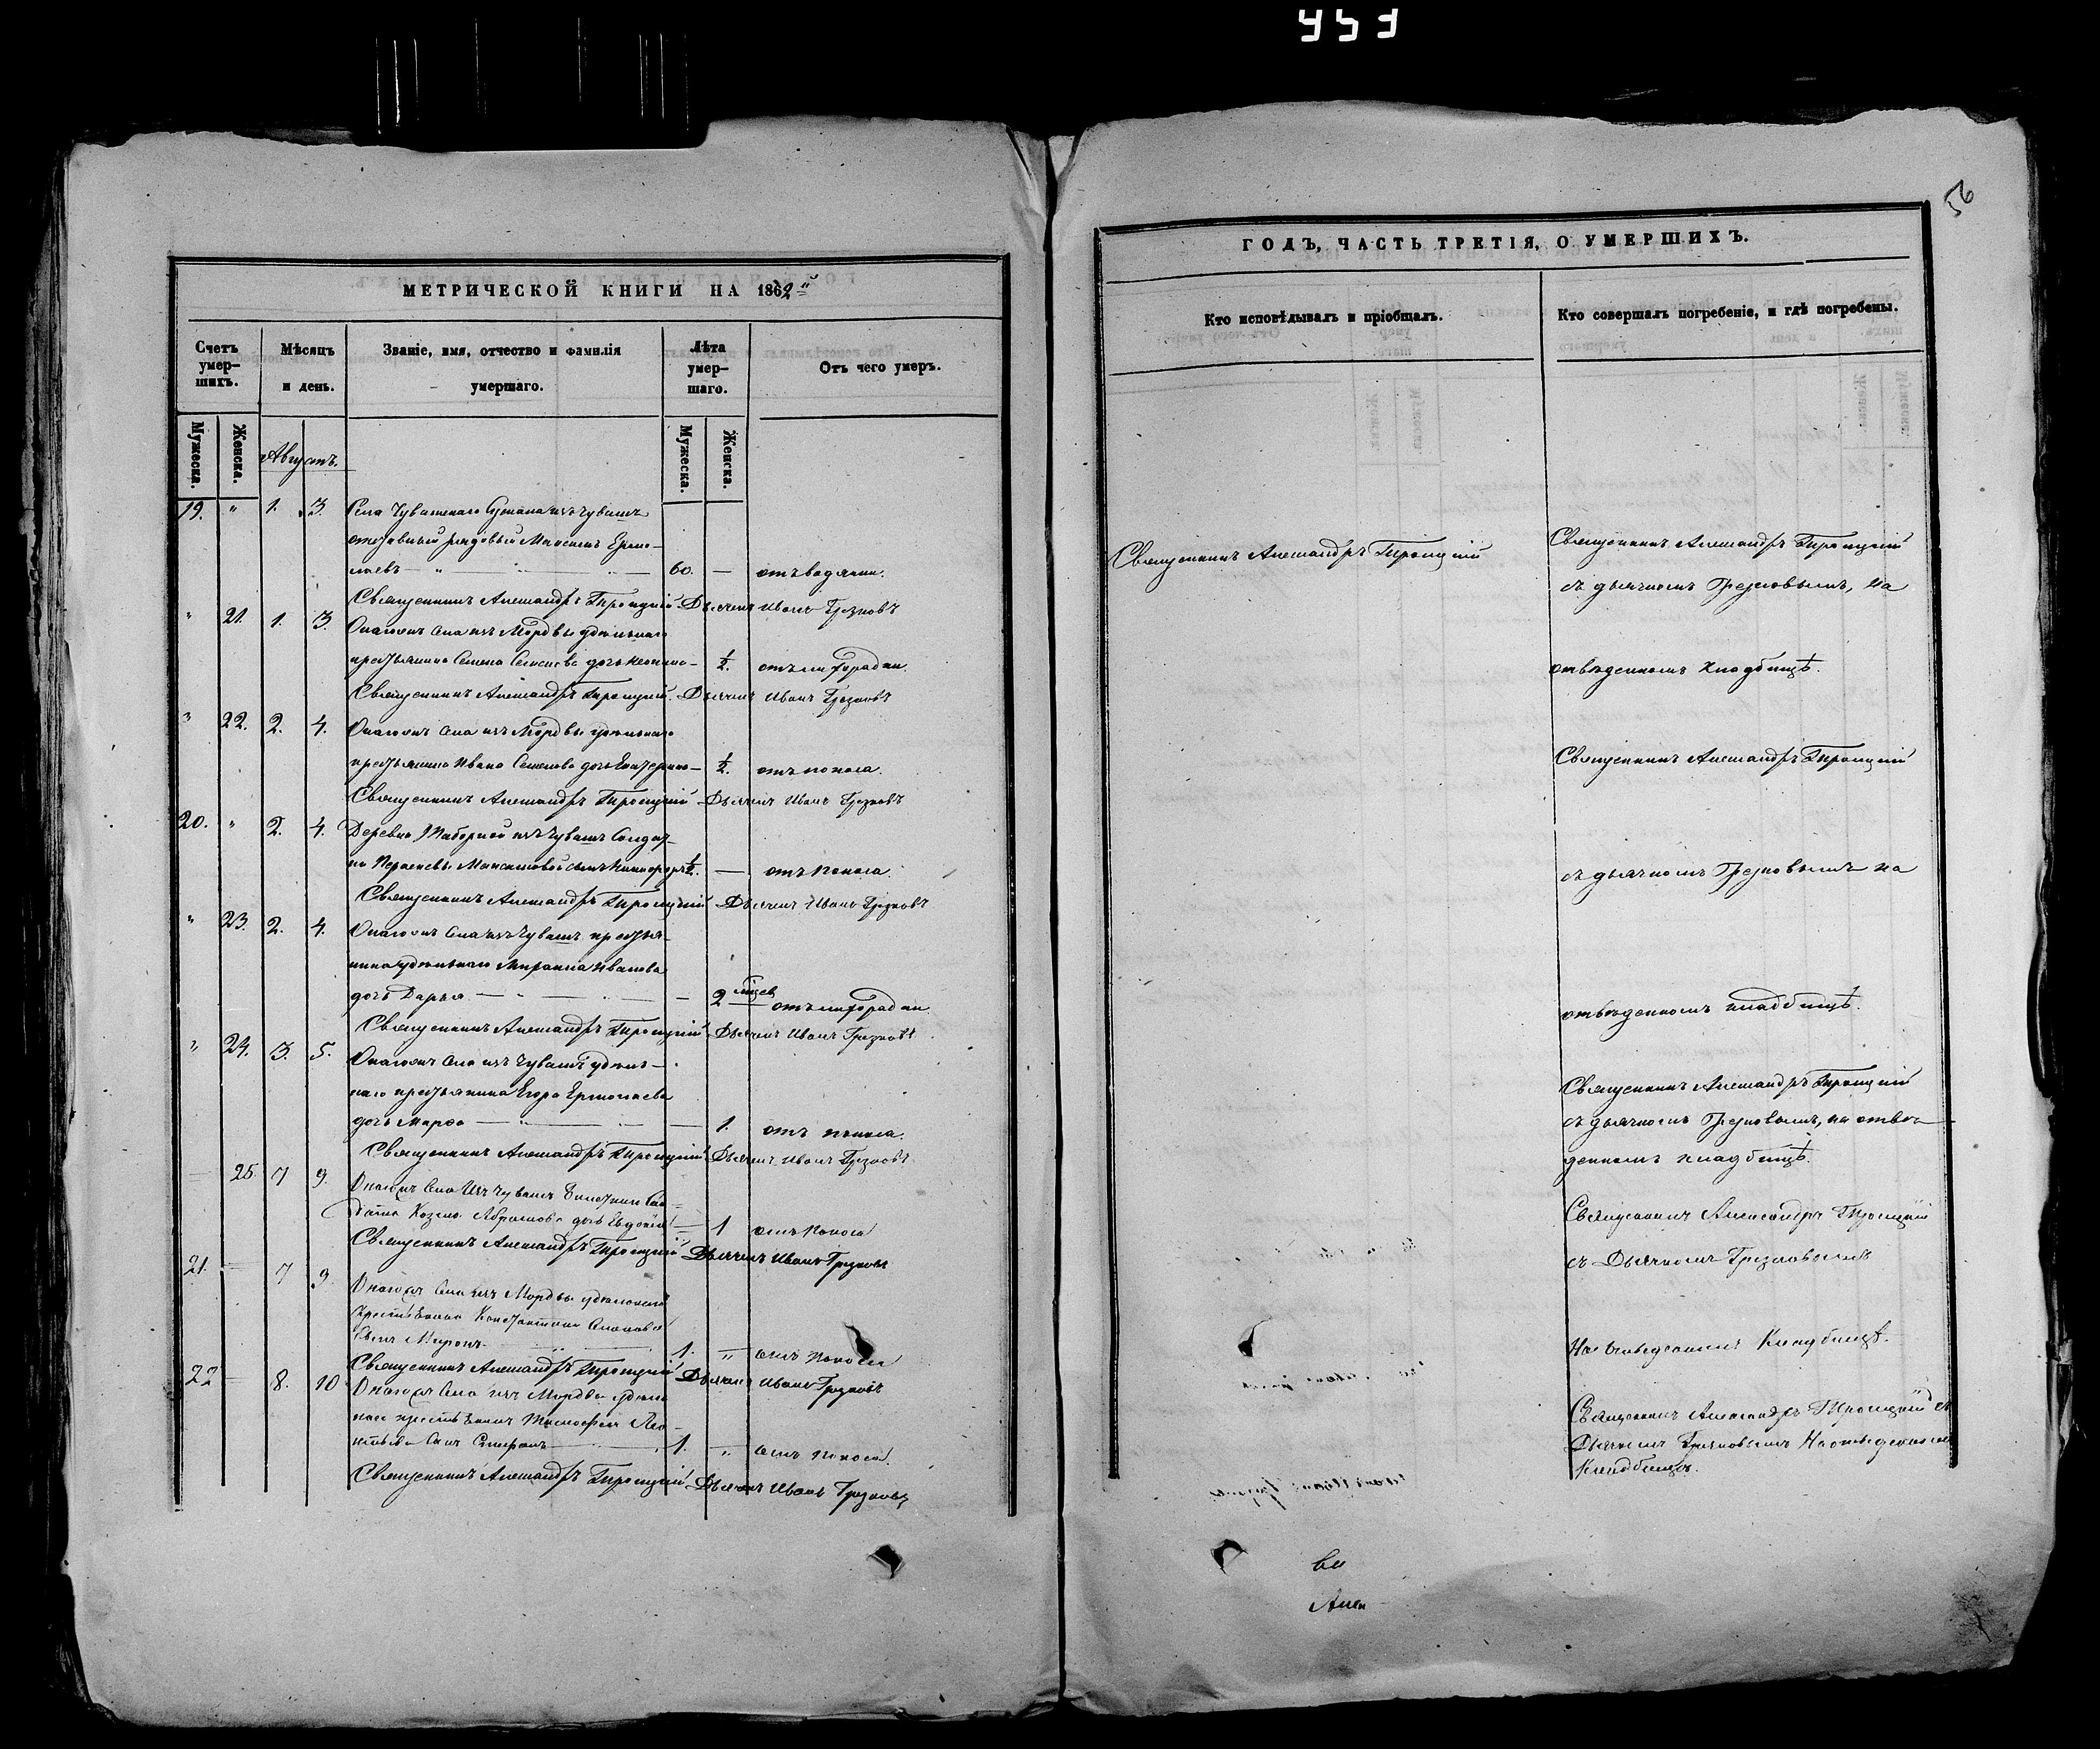 453
56
МЕТРИЧЕСКОЙ КНИГИ НА 1862й
Счетъ умер-шихъ.
Мѣсяцъ и день.
Званіе, имя, отчество и фамилія умершаго.
Лѣта умер-шаго.
Отъ чего умеръ.
Мужеска.
Женска.
Мужеска.
Женска.
Августъ.
19. " 1. 3. Села Чувашскаго изъ чувашъ
отставный рядовый Максимъ Ермо-
лаевъ — 60. — отъ водянки.
Священникъ Александръ Троицкій Дьячекъ Иванъ Грезновъ
" 21. 1. 3. Онагожъ села изъ Мордвы удѣльнаго
крестьянина Семена Семенова дочь ½. отъ лихорадки
Священникъ Александръ Троицкій. Дьячекъ Иванъ Грезновъ
" 22. 2. 4. Онагожъ села изъ Мордвы удѣльнаго
крестьянина Ивана Семенова дочь Екатерина — ½. отъ поноса.
Священникъ Александръ Троицкій Дьячекъ Иванъ Грезновъ
20. " 2. 4. Деревни изъ чувашъ Солдат-
ки Максимовой сынъ Никифоръ ½. — отъ поноса.
Священникъ Александръ Троицкій Дьячекъ Иванъ Грезновъ
" 23. 2. 4. Онагожъ села изъ чувашъ крестья-
нина удѣльнаго Иванова
дочь Дарья — 2 мѣсец. отъ лихорадки
Священникъ Александръ Троицкій Дьячекъ Иванъ Грезновъ
" 24. 3. 5. Онагожъ села изъ чувашъ удѣль-
наго крестьянина Егора Ермолаева
дочь Марѳа — 1. отъ поноса.
Священникъ Александръ Троицкій Дьячекъ Иванъ Грезновъ
— 25. 7 9. Онагожъ Села Изъ чувашъ Сол-
дата Козмы Абрамова дочь Евдокія — 1 отъ поноса
Священникъ Александръ Троицкій Дьячекъ Иванъ Грезновъ
21. — 7 9. Онагожъ Села изъ Мордвы удѣльнаго
Крестьянина Константина
Сынъ Миронъ 1. " отъ поноса
Священникъ Александръ Троицкій Дьячекъ Иванъ Грезновъ
22 — 8. 10 Онагожъ Села изъ Мордвы удѣль
наго крестьянина Тимофея Лео-
нтьева Сынъ Стефанъ 1. " отъ поноса.
Священникъ Александръ Троицкій Дьячекъ Иванъ Грезновъ
ГОДЪ, ЧАСТЬ ТРЕТІЯ, О УМЕРШИХЪ.
Кто исповѣдывалъ и пріобщалъ.
Кто совершалъ погребеніе, и гдѣ погребены.
Священникъ Александръ Троицкій
Священникъ Александръ Троицкій
съ дьячкомъ Грезновымъ, на
отведенномъ кладбищѣ.
Священникъ Александръ Троицкій
съ дьячкомъ Грезновымъ на
отведенномъ кладбищѣ.
Священникъ Александръ Троицкій
съ дьячкомъ Грезновымъ, на отве-
денномъ кладбищѣ.
Священникъ Александръ Троицкій
съ Дьячкомъ Грезновымъ
На отведенномъ Кладбищѣ.
Священникъ Александръ Троицкій съ
Дьячкомъ Грезновымъ На отведенномъ
Кладбищѣ.